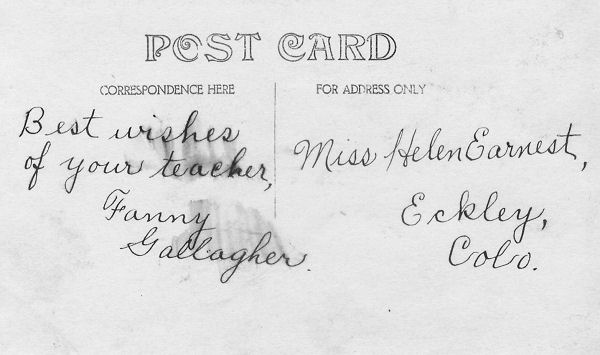 POST CARD
CORRESPONDENCE HERE
FOR ADDRESS ONLY
Best wishes
of your teacher,
Fanny
Gallagher.
Miss Helen Earnest,
Eckley,
Colo.